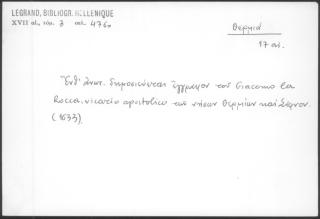 LEGRAND, BIBLIOGR. HELLENIQUE
XVII αἰ., τόμ. 3 σελ. 476
Θερμιά
17 αἰ.
Ἔνθ' ἀνωτ. δημοσιεύεται ἔγγραφον τοῦ Giacomo la
Rocca, vicario apostolico τῶν νήσων Θερμίων καὶ Σίφνου.
(1633)